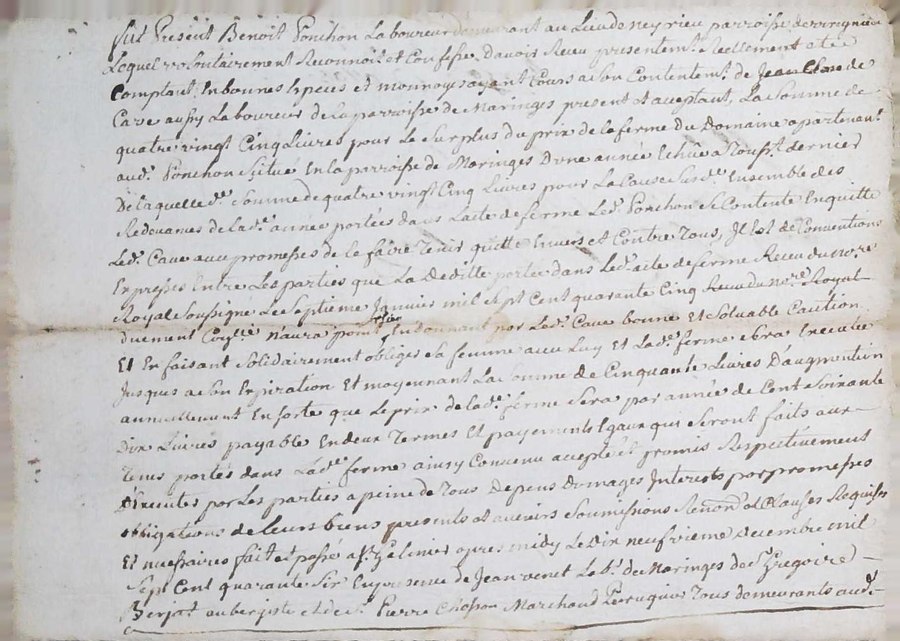 fut Présent Benoit Ponchon Laboureur demeurant au Lieu de neyrieu parroisse de
Lequel volontairement Reconnoit et Confesse d'avoir Receu presentemt. Reellement et
Comptant En bonnes Especes et monnoys ayant Cours a son Contentemt. de Jean de
Cave aussy Laboureur de la parroisse de Maringes present et aceptant, La Somme de
quatre vingt Cinq Livres pour Le Surplus du prix de la ferme du Domaine apartenant
aud. Ponchon Situé En la parroisse de Maringes D'une année Echüe a Toust. dernier
De laquelle de. Somme de quatre vingt Cinq Livres pour La Cause Susde. Ensemble des
Redevances de lade. année portées dans Lacte de ferme Led. Ponchon Se Contente En quitte
Led. Cave avec promesses de le faire Tenir quitte Envers et Contre Tous, Il Est de Conventions
Expresses Entre Les parties que La Deditte portée dans Led. acte de ferme Receu du nore.
Royal Soussigné Le Septieme Janvier mil Sept Cent quarante Cinq Receu du nore. Royal
duement n'aura point En donnant par Led. Cave bonne et Soluable Caution
Et En faisant Solidairement obliger Sa femme avec Luy Et Lade. ferme Sera Executée
Jusques a Son Expiration Et moyennant La Somme de Cinquante Livres D'augmentin
annuellement En forte que Le prix de lade. ferme Sera par année de Cent Soixante
Dix Livres payable En deux Termes Et payements Egaux qui Seront faits aux
Tems portés dans Lade. ferme ainsy Convenu accepté et promis Respectivement
D'Executer par Les parties a peine de Tous Depens Domages Interets par promesses
obligations de Leurs biens presents et avenirs Soumissions Renon. et Clauses Requises
Et nessaires fait et passé a St. apres midy Le Dix neufvieme Decembre mil
Sept Cent quarante Six En presence de Jean venet Lab. de Maringes de Sr. Gregoire
aubergiste et de Sr. Pierre Chosson Marchand Perruquier Tous demeurants aud.